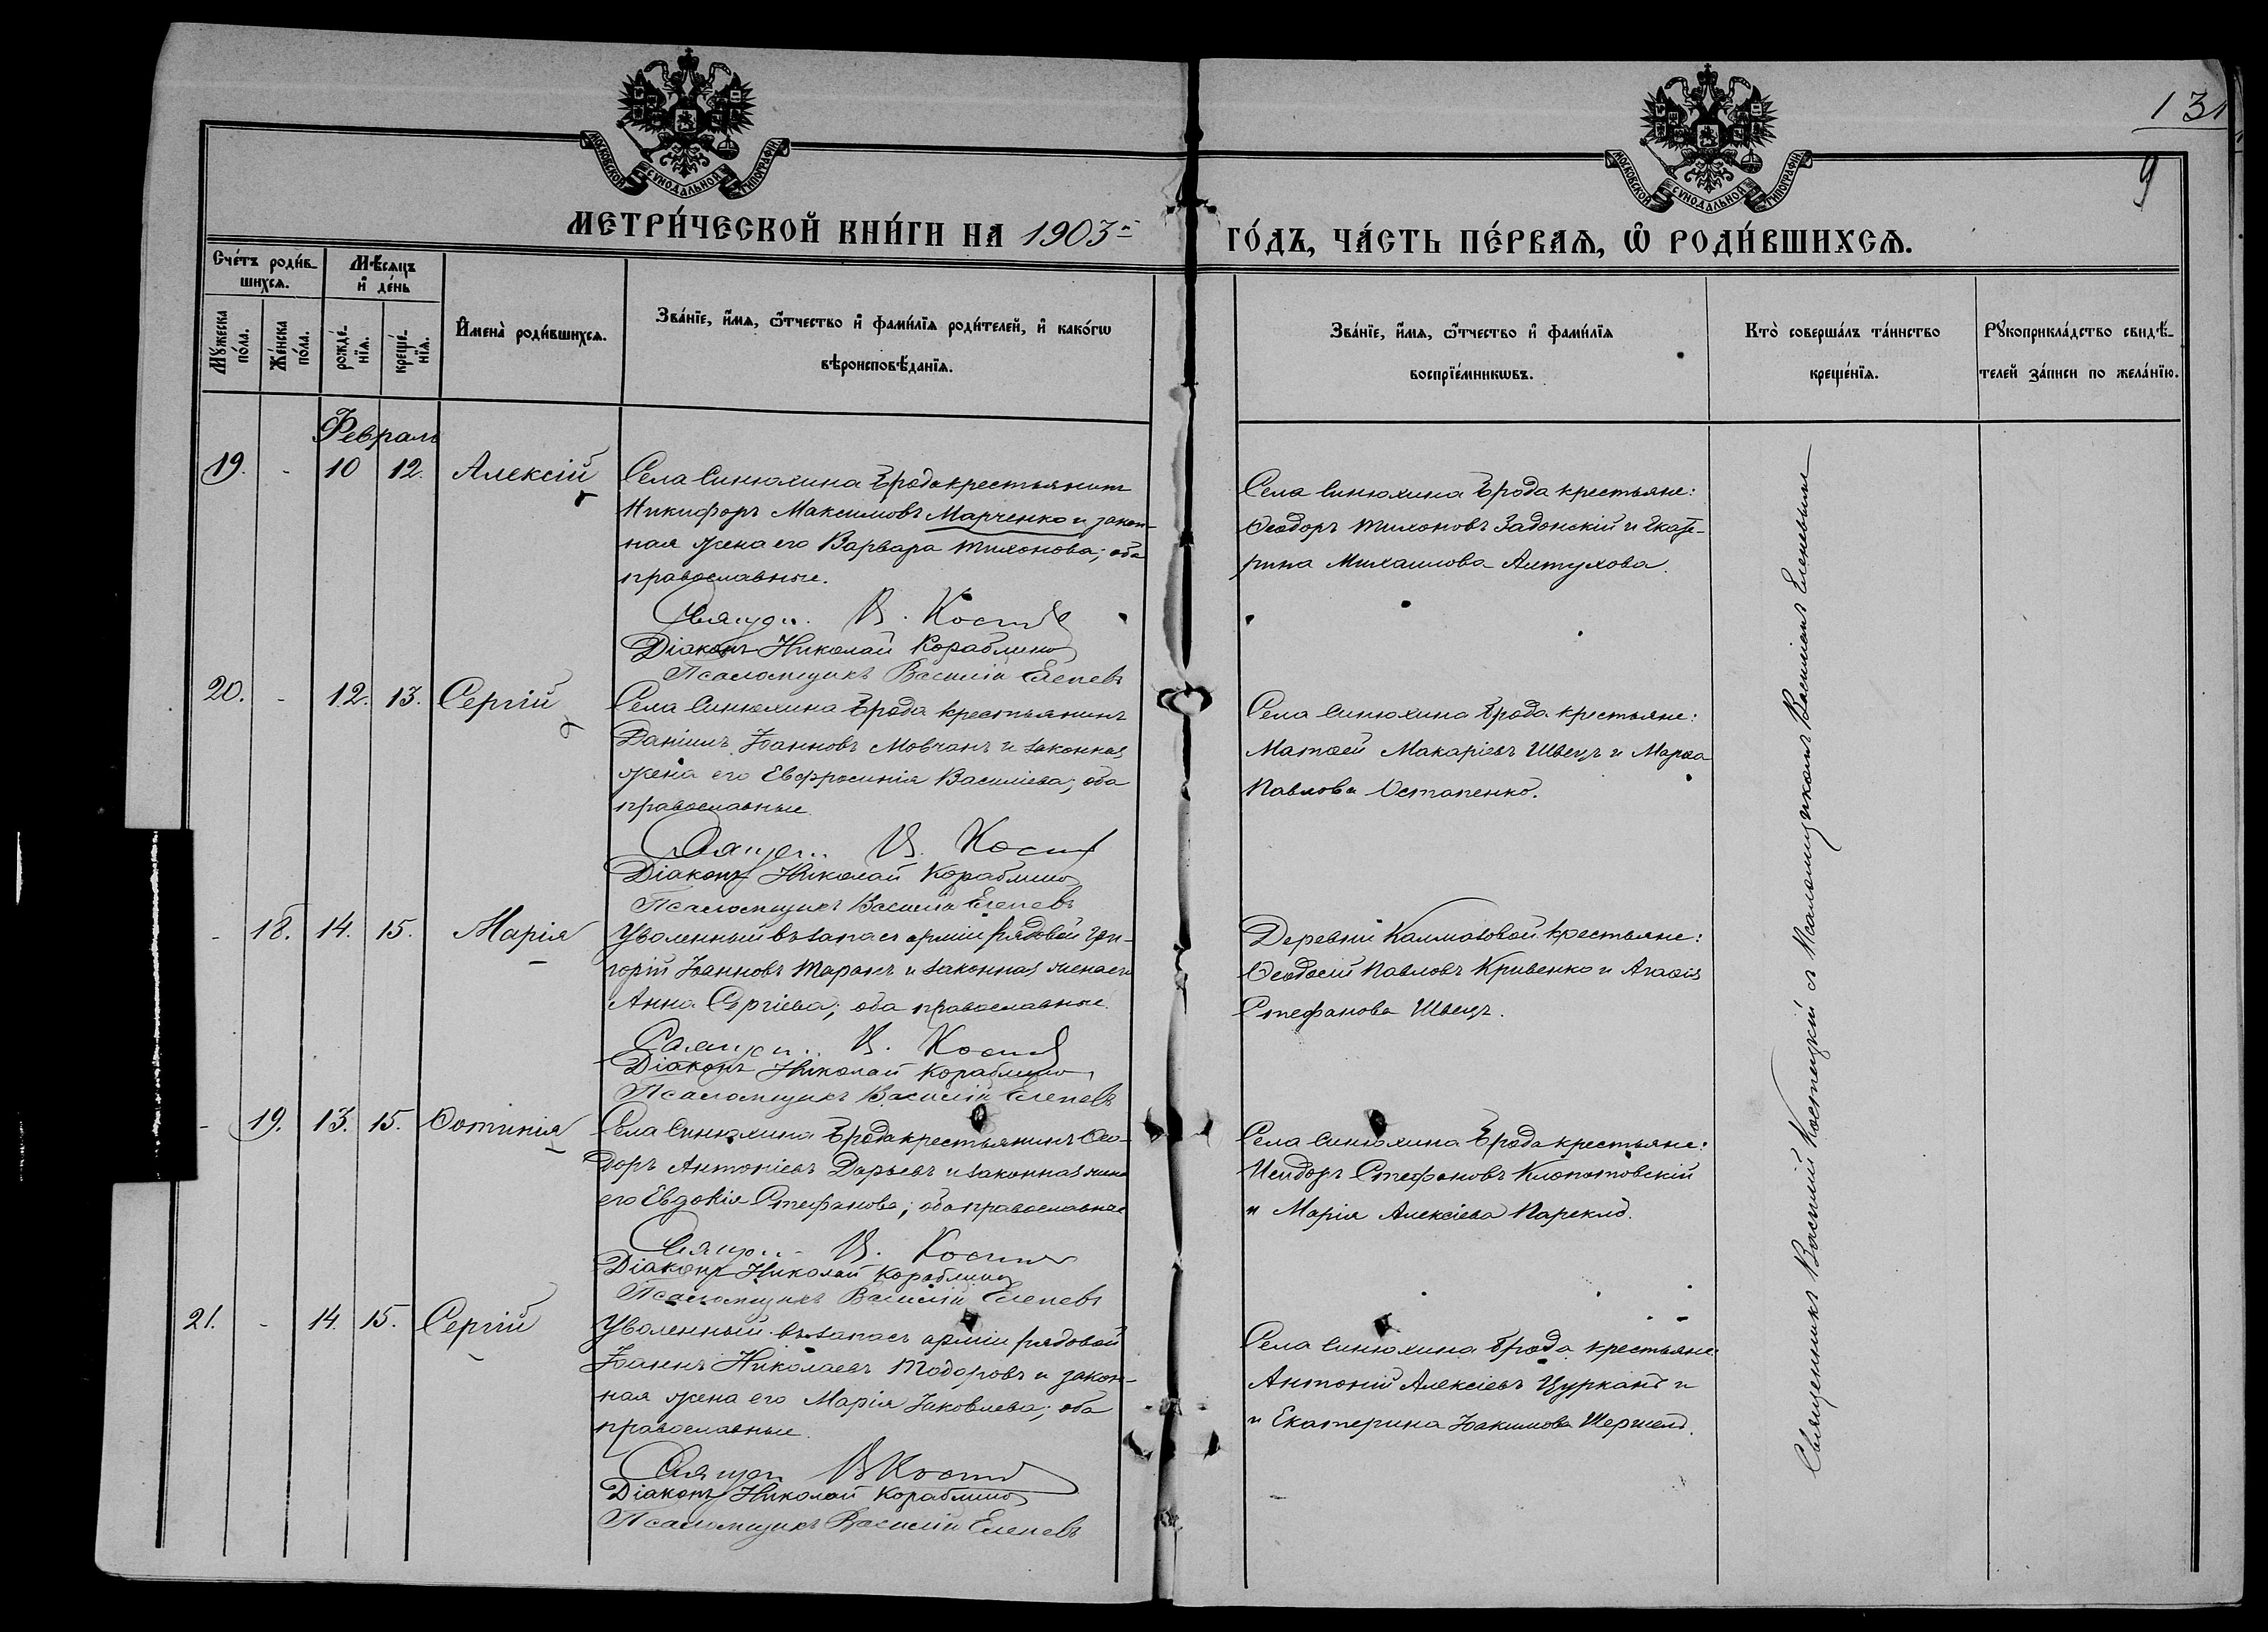 131
9
МОСКОВСКОЙ СѴНОДАЛЬНОЙ ТИПОГРАФІИ
МОСКОВСКОЙ СѴНОДАЛЬНОЙ ТИПОГРАФІИ
МЕТРИ́ЧЕСКОЙ КНИ́ГИ НА 1903 ГО́ДЪ, ЧА́СТЬ ПЕ́РВАѦ, Ѡ҆ РОДИ́ВШИХСѦ.
Сче́тъ роди́в-
шихсѧ.
Мѣ́сѧцъ
и҆ де́нь
Мꙋ́жеска
по́ла.
Же́нска
по́ла.
рожде́-
нїѧ.
креще́-
нїѧ.
И҆мена̀ роди́вшихсѧ.
Зва́нїе, и҆́мѧ, ѻ҆́тчество и҆ фами́лїѧ роди́телей, и҆ какѡ́гѡ
вѣроисповѣ́данїѧ.
Зва́нїе, и҆́мѧ, ѻ҆́тчество и҆ фами́лїѧ
воспрїе́мникѡвъ.
Кто̀ соверша́лъ та́инство
креще́нїѧ.
Рꙋкоприкла́дство свидѣ́-
телей за́писи по жела́нїю.
Февраль
19. - 10 12. Алексій
Села Синюхина Брода крестьянинъ
Никифоръ Максимовъ Марченко и закон-
ная жена его Варвара Тихонова; оба
православные.
Діаконъ Николай Кораблино
Псаломщикъ Василій Еленевъ
Села Синюхина Брода крестьяне:
Ѳеодоръ Тихоновъ Задонскій и Екате-
рина Михаилова Алтухова.
20. - 12. 13. Сергій
Села Синюхина Брода крестьянинъ
Даніилъ Іоанновъ Мовчанъ и законная
жена его Евфросинія Василіева; оба
православные
Діаконъ Николай Кораблино
Псаломщикъ Василій Еленевъ
Села Синюхина Брода крестьяне:
Матѳей Макаріевъ Швецъ и Марѳа
Павлова Остапенко.
- 18. 14. 15. Марія
Уволенный въ запасъ арміи рядовой Гри-
горій Іоанновъ Таранъ и законная жена его
Анна Сергіева; оба православные.
Діаконъ Николай Кораблино
Псаломщикъ Василій Еленевъ
Деревни Калмазовой крестьяне:
Ѳеодосій Павловъ Кривенко и Агаѳія
Стефанова Швецъ.
- 19. 13. 15. Фотинія
Села Синюхина Брода крестьянинъ Ѳео-
доръ Антоніевъ Дарьевъ и законная жена
его Евдокія Стефанова; оба православные
Діаконъ Николай Кораблино
Псаломщикъ Василій Еленевъ
Села Синюхина Брода крестьяне:
Исидоръ Стефановъ Клопотовскій
и Марія Алексіева
21. - 14. 15. Сергій
Уволенный въ запасъ арміи рядовой
Іоаннъ Николаевъ Тодоровъ и закон-
ная жена его Марія Іаковлева; оба
православные.
Діаконъ Николай Кораблино
Псаломщикъ Василій Еленевъ
Села Синюхина Брода крестьяне
Антоній Алексіевъ Цурканъ и
и Екатерина Іоакимова
Священникъ Василій Костецкій съ Псаломщикомъ Василіемъ Еленевымъ